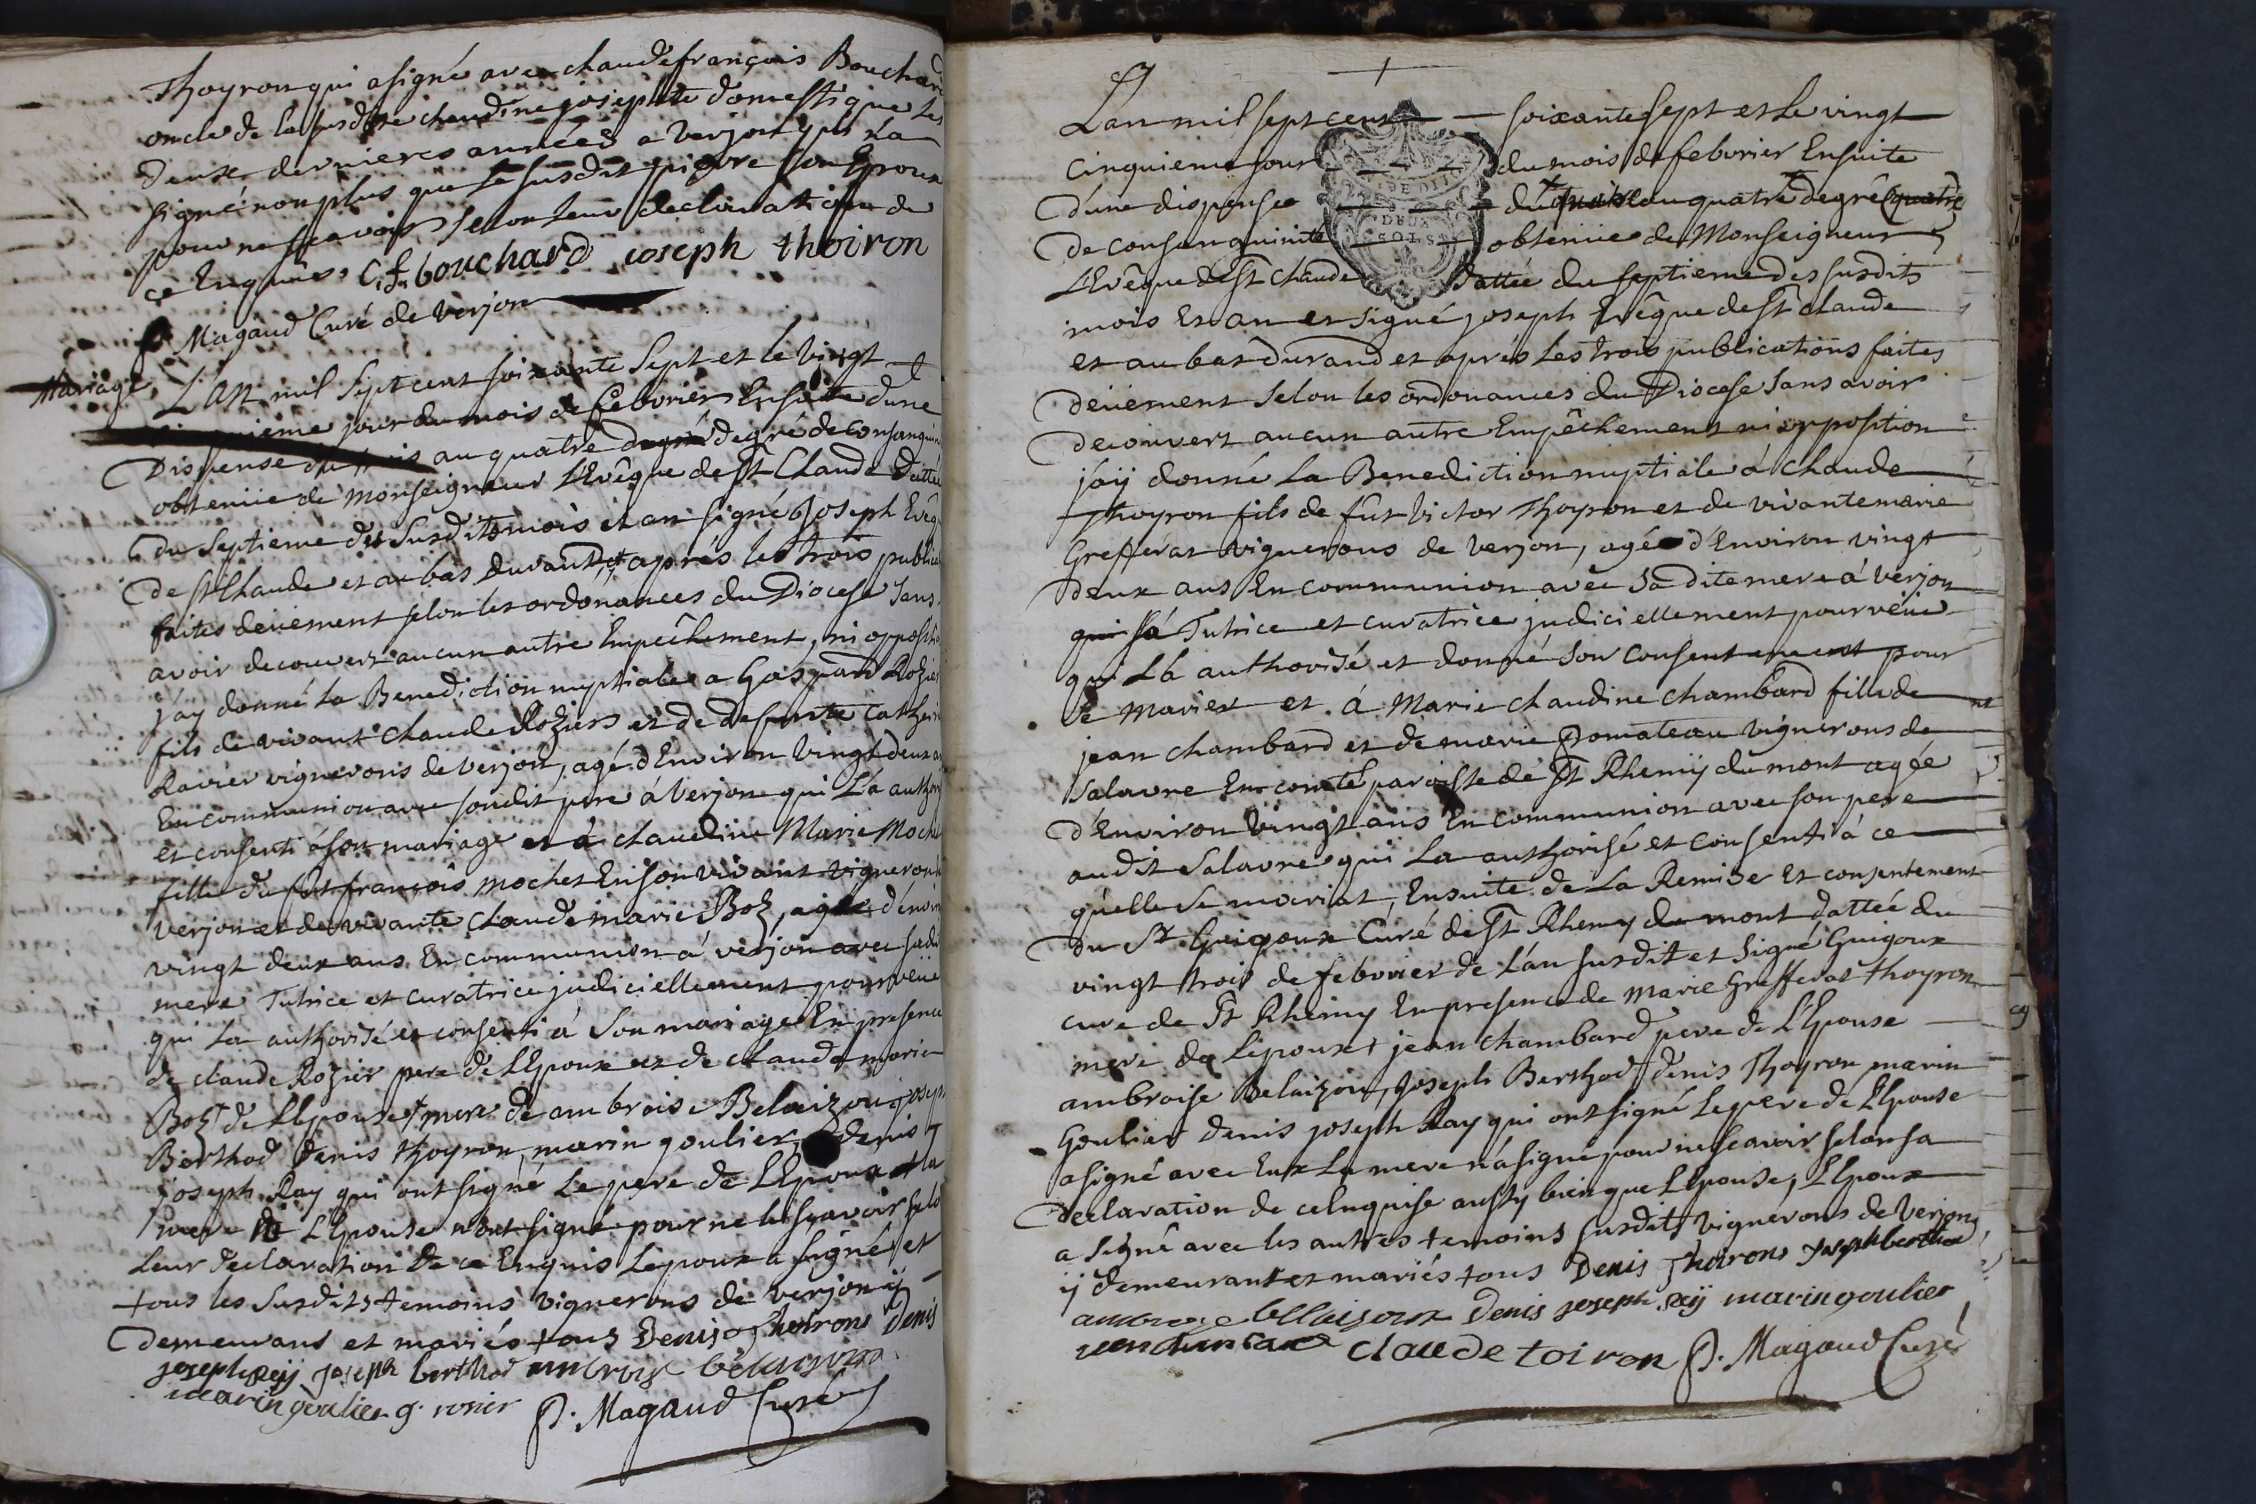 Thoyron qui a signé avec claude françois Bouchard
oncle de la susdite claudine josephte domestique les
deux dernieres années a verjon
signé non plus que le susdit pierre son Epoux
pour ne scavoir selon leur declaration de
ce Enquis, C. f. bouchard joseph thoiron
P. Magaud Curé de verjon
Mariage, L'an mil sept cent soixante sept et le vingt
jour du mois de febvrier Ensuite dune
Dispense du trois au quatre degré de consanguini
obtenüe de monseigneur L'Evêque de St Claude Dattée
du septieme des susdits mois et an signé Joseph Evêq
de st Claude et au bas durand, et aprés les trois public
faites deüement selon les ordonances du Diocese sans
avoir decouvert aucun autre Empêchement, ni oppositio
j'ay donné la Benediction nuptiale a Gaspard Rozier
fils de vivant Claude Roziers et de defunte Catheri
Ravier vignerons de verjon, agé d'Environ vingt deux a
En communion avec son dit pere à verjon qui L'a author
et consenti à son mariage et à claudine Marie Moche
fille du fut françois mochet En son vivant vigneron
verjon et de vivante claude marie Boz, agée d'envir
vingt deux ans En communion à verjon avec sa di
mere Tutrice et curatrice judiciellement pourveüe
qui La authorisé et consenti à son mariage En presence
de claude Rozier pere de L'Epoux et de claude marie
Boz de L'Epouse mere de ambroise Belaizou joseph
Berthod denis thoyron, marin goulier denis
joseph Ray qui ont signé le pere de L'Epoux et la
mere de L'Epouse n'ont signé pour ne le scavoir selo
leur declaration de ce Enquis L'epoux a signé et
tous les susdits temoins vignerons de verjon ÿ
demeurans et mariés tous Denis Thoirons Denis
joseph Reÿ Joseph berthod
marin goulier g. rosier P. Magaud Curé
L'an mil sept cent soixante sept et le vingt
cinquieme jour du mois de febvrier Ensuite
d'une dispense du au quatre degré
de consanguinité obtenüe de Monseigneur
L'Evêque de St Claude dattée du septieme des susdits
mois Et an et signé joseph Evêque de St Claude
et au bas durand et aprés les trois publications faites
deüement selon les ordonances du Diocese sans avoir
decouvert aucun autre Empêchement ni opposition
j'aÿ donné la Benediction nuptiale à Claude
Thoyron fils de fût victor Thoyron et de vivante marie
Grefferat vignerons de verjon, agé d'Environ vingt
deux ans En communion avec sa dite mere à verjon
qui sa Tutrice et curatrice judiciellement pourveüe
qui La authorisé et donné son consentement pour
se marier et à Marie claudine chambard fille de
jean chambard et de marie Pomateau vignerons de
salavre En comté paroisse de St Rhemÿ du mont agée
d'Environ vingt ans En communion avec son pere
audit salavre qui La authorisé et consenti à ce
qu'elle se mariat, Ensuite de La Remise Et consentement
du Sr Guigoux Curé de St Rhemy du mont dattée du
vingt trois de febvrier de L'an susdit et signé Guigoux
cure de St Rhemy En presence de marie Grefferat thoyron
mere de L'epoux, jean chambard pere de L'Epouse
ambroise Belaizou, joseph Berthod denis Thoyron marin
Goulier denis joseph Ray qui ont signé le pere de L'Epouse
a signé avec Eux La mere n'a signé pour ne scavoir selon sa
declaration de ce Enquise aussy bien que L'Epouse, L'Epoux
a signé avec les autres temoins susdits vignerons de verjon
ÿ demeurant et mariés tous Denis Thoirons Joseph berthod
bellaisoux Denis joseph reÿ marin goulier
claude toiron P. Magaud Curé
DEUX
SOLS